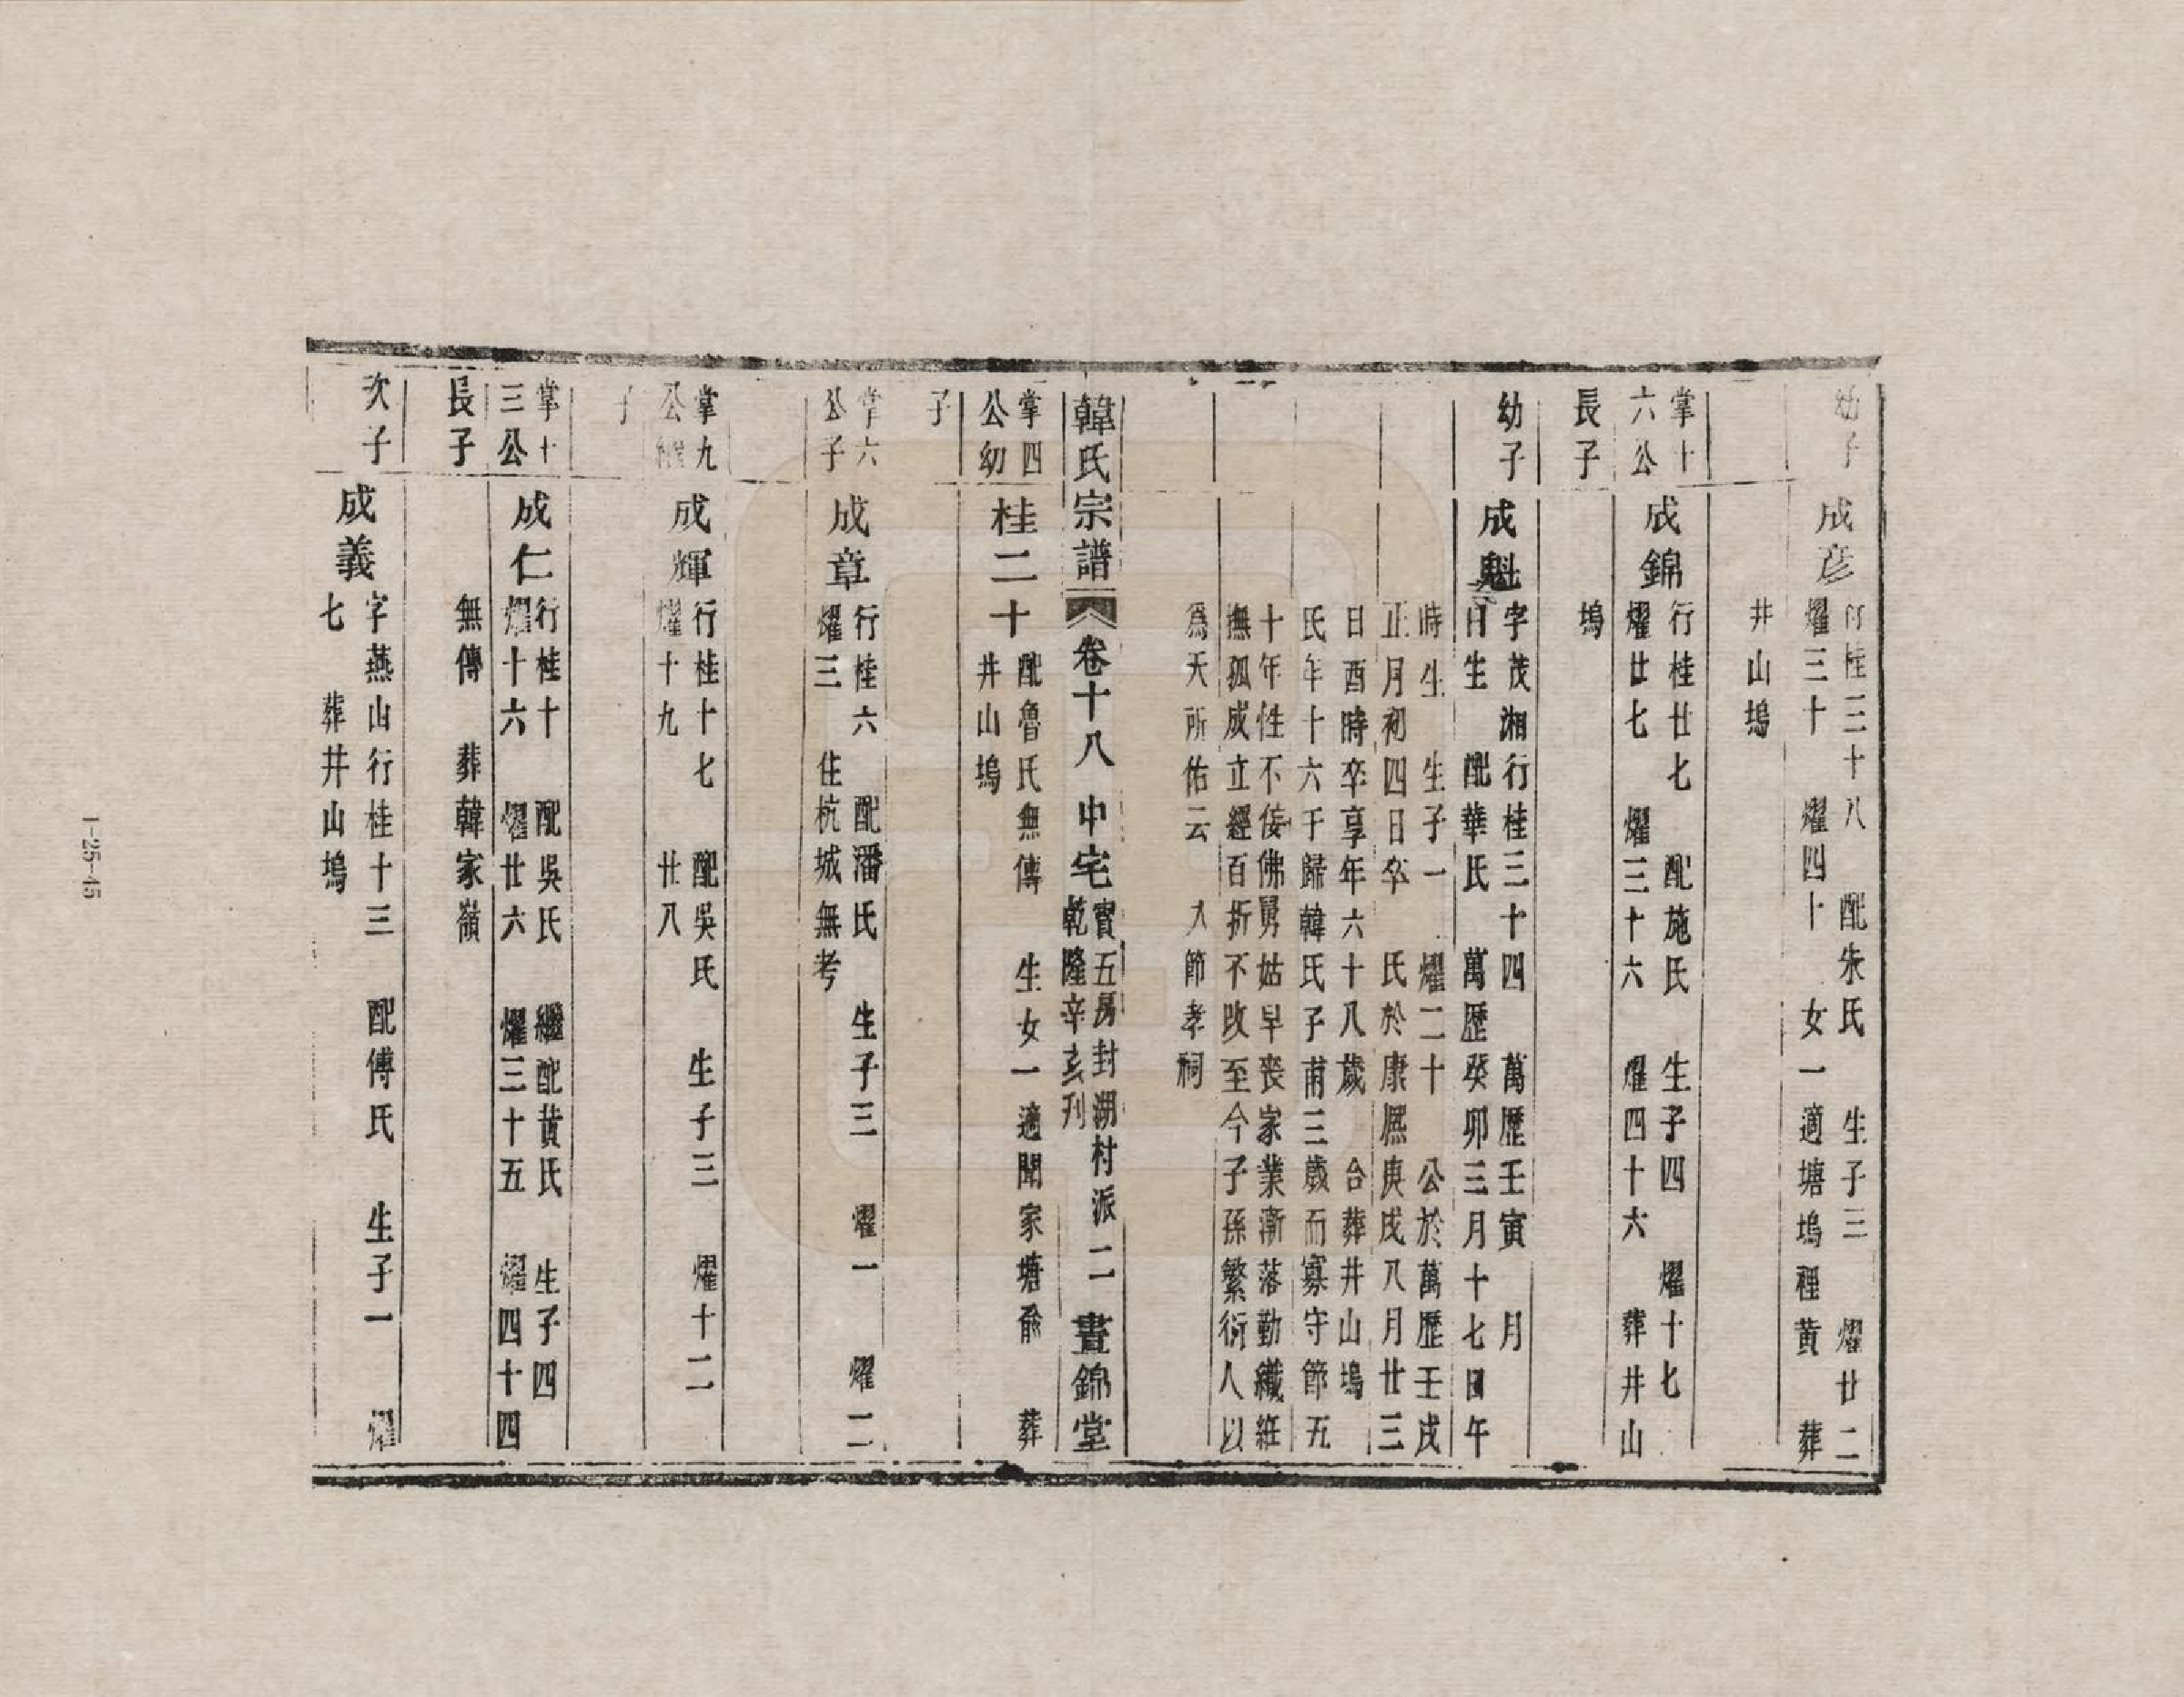 幼子
成彦
行桂三十八　配朱氏　生子三　燿廿二
燿三十　燿四十　女一適塘塢裡黄　葬
井山塢
掌十
六公
長子
成錦
行桂廿七　配施氏　生子四　燿十七
燿廿七　燿三十六　燿四十六　葬井山
塢
幼子
成魁
字茂湘行桂三十四　萬歷壬寅　月
日生　配華氏　萬歷癸卯三月十七日午
時生　生子一　燿二十　公於萬歷壬戌
正月初四日卒　氏於康熈庚戌八月廿三
日酉時卒享年六十八歲　合葬井山塢
氏年十六于歸韓氏子甫三歲而寡守節五
十年性不佞佛舅姑早喪家業漸落勤織紝
撫孤成立經百折不改至今子孫繁衍人以
爲天所佑云　入節孝祠
韓氏宗譜　卷十八　中宅　寶五房封湖村派　二　晝錦堂
乾隆辛亥刊
掌四
公幼
子
桂二十
配魯氏無傳　生女一適聞家塘俞　葬
井山塢
掌六
公子
成章
行桂六　配潘氏　生子三　燿一　燿二
燿三　住杭城無考
掌九
公繼
子
成輝
行桂十七　配吳氏　生子三　燿十二
燿十九　廿八
掌十
三公
長子
成仁
行桂十　配吳氏　繼配黄氏　生子四
燿十六　燿廿六　燿三十五　燿四十四
無傳　葬韓家嶺
次子
成義
字燕山行桂十三　配傅氏　生子一　燿
七　葬井山塢
1-25-15